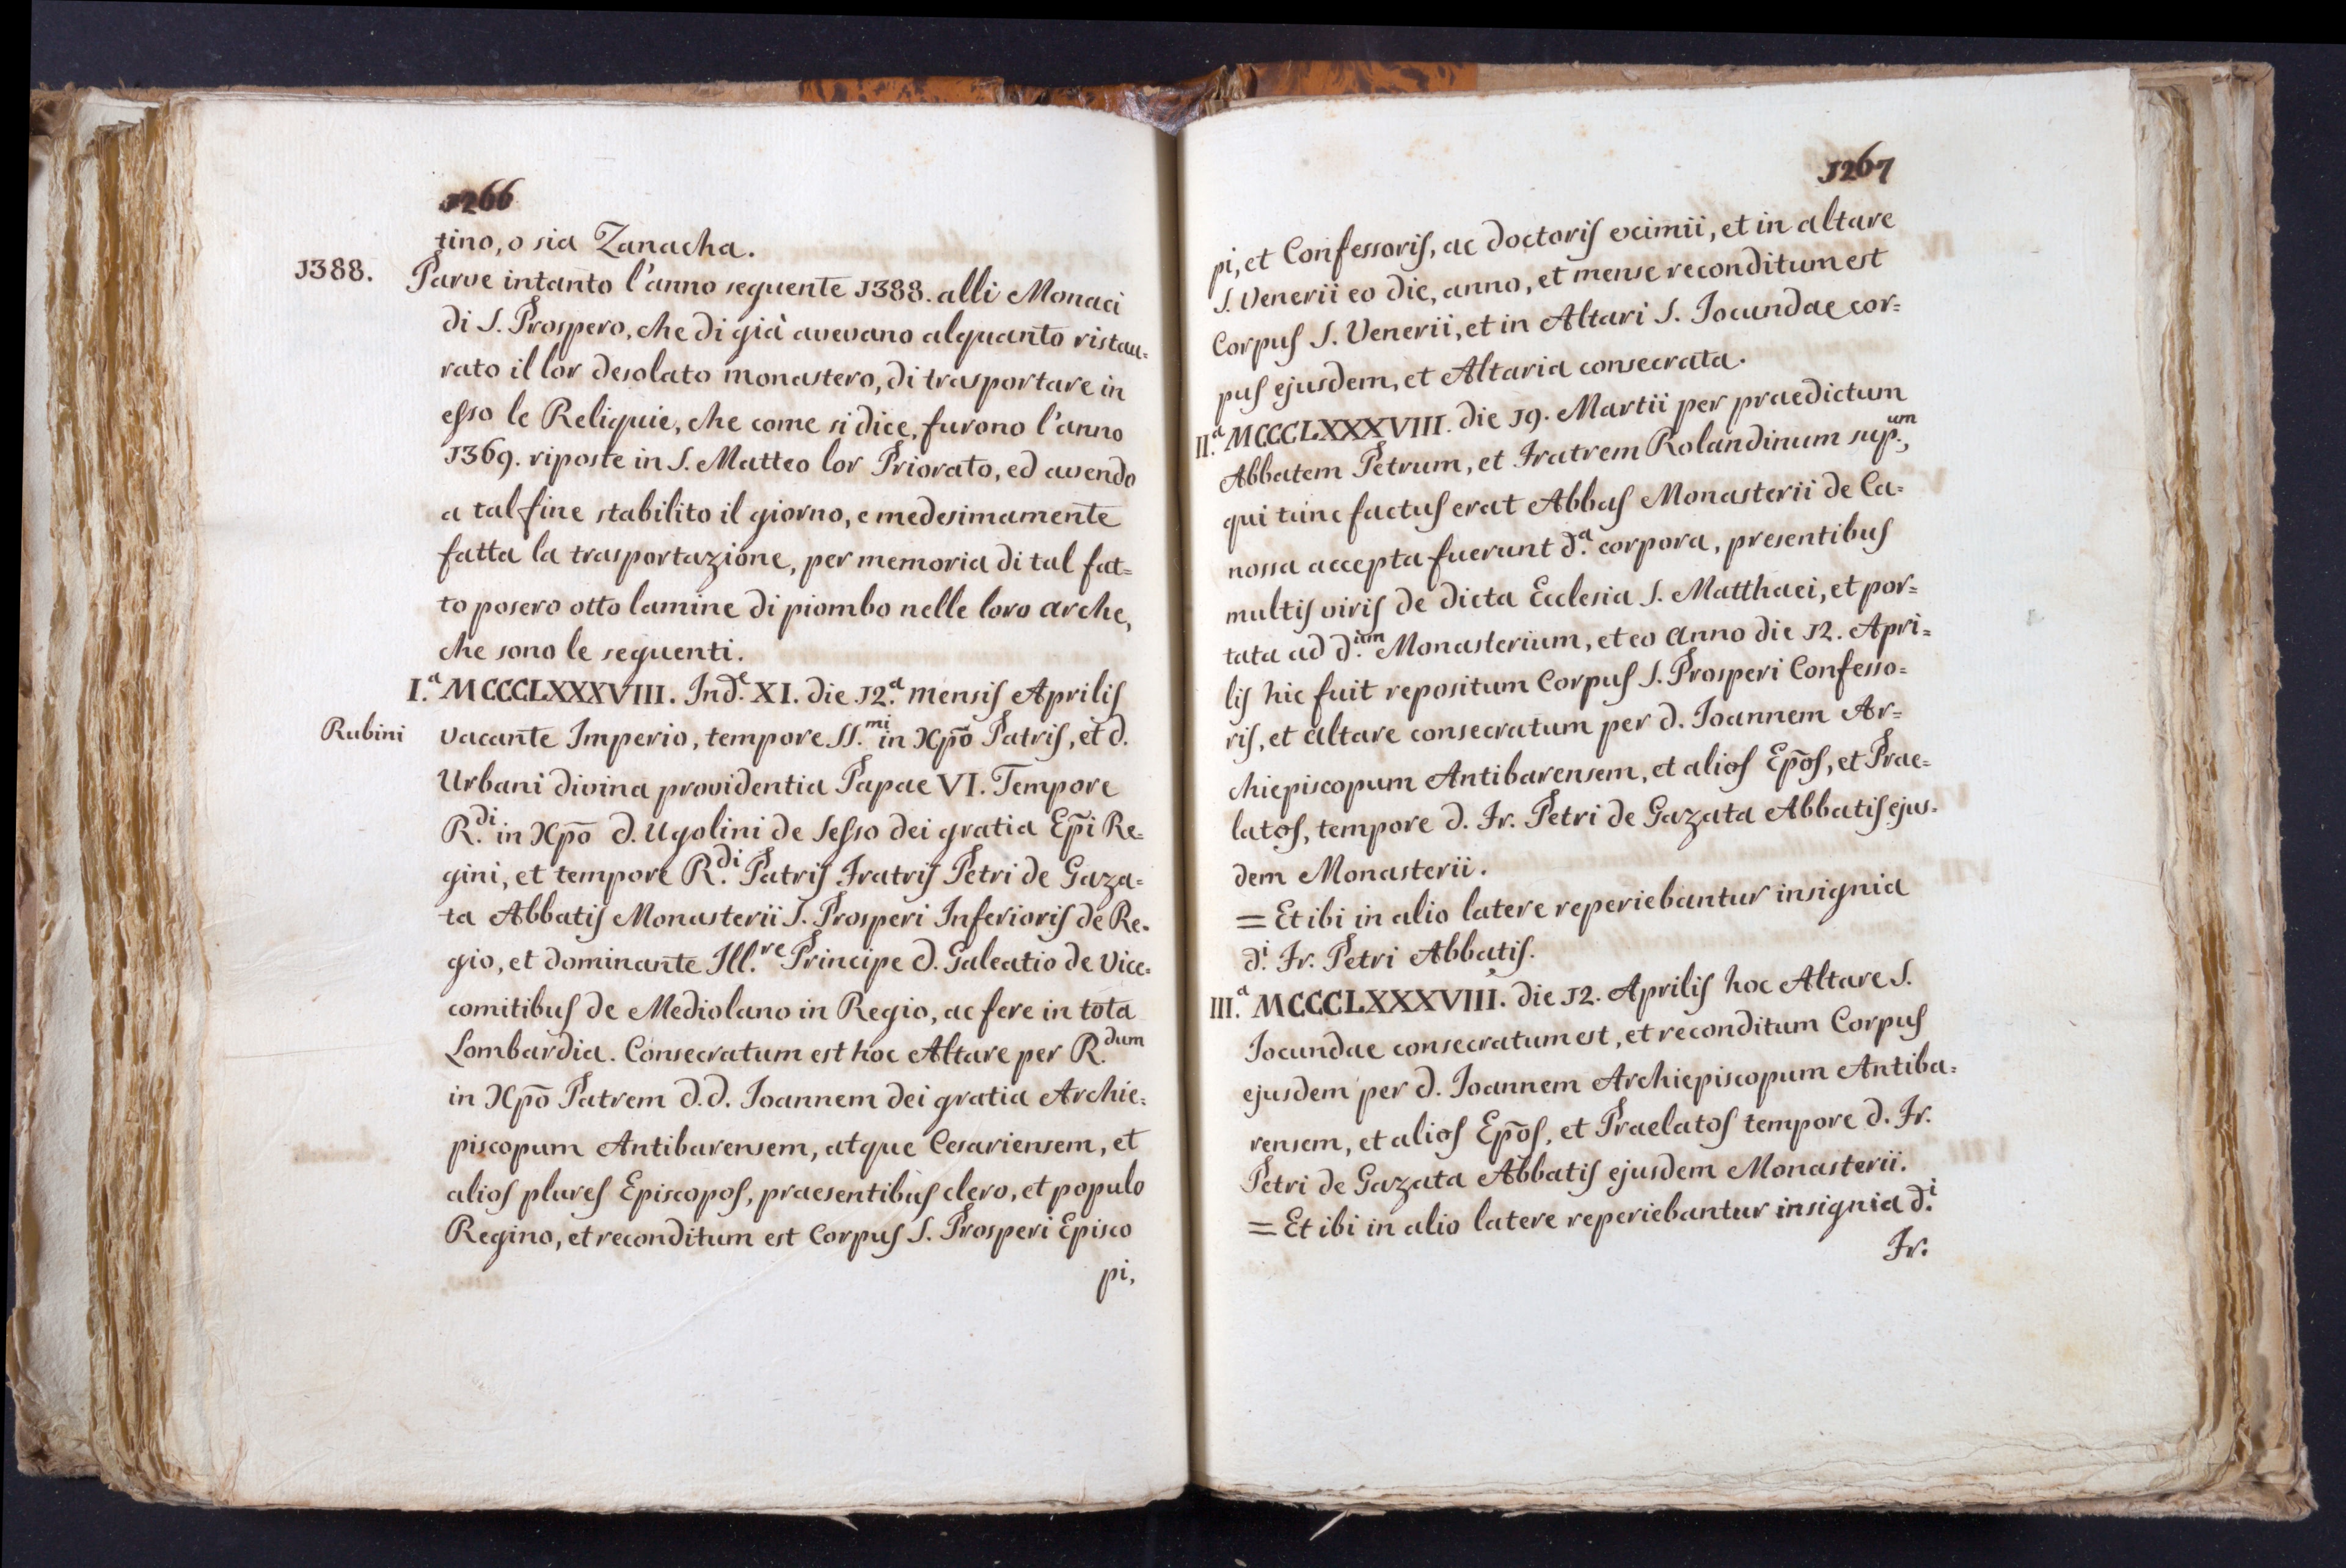 1266
tino, o sia Zanacha.
1388. Parve intanto l'anno seguente 1388. alli Monaci
di S. Prospero, che di già avevano alquanto ristau=
rato il lor desolato monastero, di trasportare in
esso le Reliquie, che come si dice, furono l'anno
1369. riposte in S. Matteo lor Priorato, ed avendo
a tal fine stabilito il giorno, e medesimamente
fatta la trasportazione, per memoria di tal fat=
to posero otto lamine di piombo nelle loro arche,
che sono le seguenti.
I.a MCCCLXXXVIII. Ind.e XI. die 12.a mensis Aprilis
Rubini vacante Imperio, tempore SS.mi in Xpō Patris, et d.
Urbani divina providentia Papae VI. Tempore
R.di in Xpō d. Ugolini de Sesso dei gratia Ep̃i Re=
gini, et tempore R.di Patris Fratris Petri de Gaza=
ta Abbatis Monasterii S. Prosperi Inferioris de Re=
gio, et dominante Ill.re Principe d. Galeatio de Vice=
comitibus de Mediolano in Regio, ac fere in tota
Lombardia. Consecratum est hoc Altare per R.dum
in Xpō Patrem d.d. Joannem dei gratia Archie=
piscopum Antibarensem, atque Cesariensem, et
alios plures Episcopos, praesentibus clero, et populo
Regino, et reconditum est Corpus S. Prosperi Episco
pi,
1267
pi, et Confessoris, ac doctoris eximii, et in altare
S. Venerii eo die, anno, et mense reconditum est
Corpus S. Venerii, et in Altari S. Jocundae cor=
pus ejusdem, et Altaria consecrata.
II.a MCCCLXXXVIII. die 19. Martii per praedictum
Abbatem Petrum, et Fratrem Rolandinum sup.um,
qui tunc factus erat Abbas Monasterii de Ca=
nossa accepta fuerunt d.a corpora, presentibus
multis viris de dicta Ecclesia S. Matthaei, et por=
tata ad d.um Monasterium, et eo anno die 12. Apri=
lis hic fuit repositum Corpus S. Prosperi Confesso=
ris, et altare consecratum per d. Joannem Ar=
chiepiscopum Antibarensem, et alios Ep̃os, et Prae=
latos, tempore d. Fr. Petri de Gazata Abbatis ejus=
dem Monasterii.
= Et ibi in alio latere reperiebantur insignia
d.i Fr. Petri Abbatis.
III.a MCCCLXXXVIII. die 12. Aprilis hoc Altare S.
Jocundae consecratum est, et reconditum Corpus
ejusdem per d. Joannem Archiepiscopum Antiba=
rensem, et alios Ep̃os, et Praelatos tempore d. Fr.
Petri de Gazata Abbatis ejusdem Monasterii.
= Et ibi in alio latere reperiebantur insignia d.i
Fr.